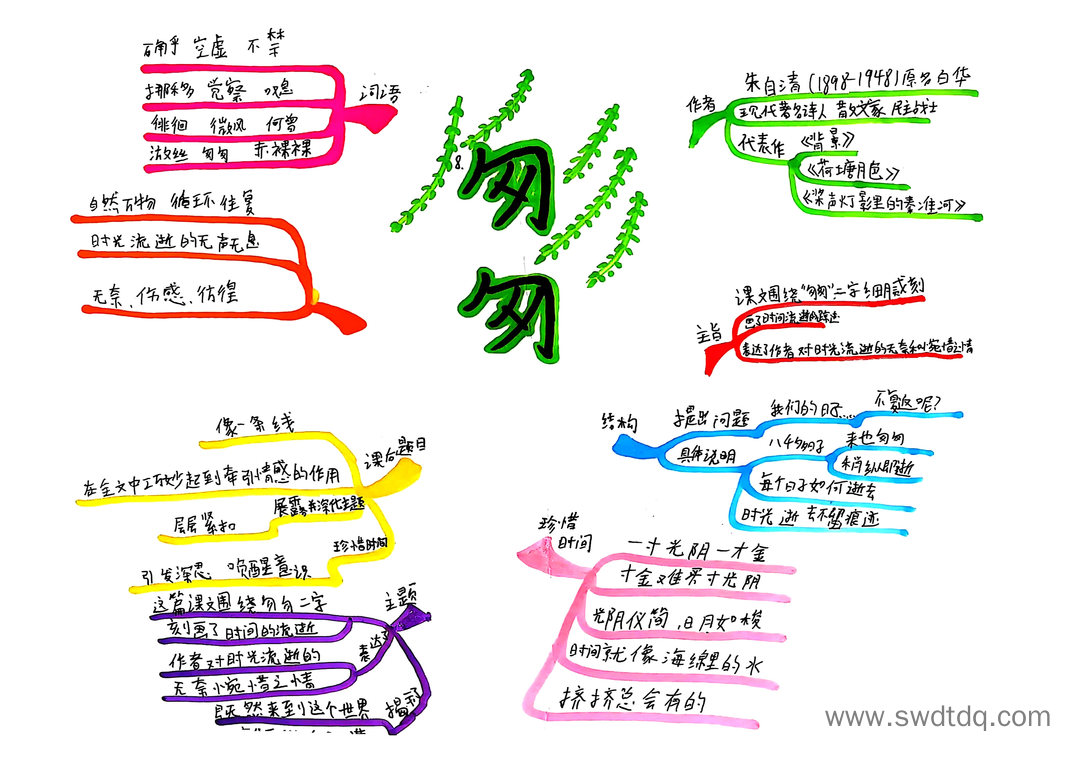 8.
匆
匆
词语
确乎 空虚 不禁
挪移 觉察 叹息
徘徊 微风 何曾
游丝 匆匆 赤裸裸
自然万物 循环往复
时光流逝的无声无息
无奈、伤感、彷徨
作者
朱自清(1898-1948)原名自华
现代著名诗人 散文家 民主战士
代表作
《背景》
《荷塘月色》
《桨声灯影里的秦淮河》
主旨
课文围绕"匆匆"二字细腻刻
画了时间流逝的踪迹
表达了作者对时光流逝的无奈和惋惜之情
结构
提出问题
我们的日子……
不复返呢?
具体说明
八千多日子
来也匆匆
稍纵即逝
每个日子如何逝去
时光逝去不留痕迹
课后题目
像一条线
在全文中巧妙起到牵引情感的作用
层层紧扣
展露并深化主题
珍惜时间
引发深思 唤醒意识
主题
这篇课文围绕匆匆二字
刻画了时间的流逝
表达了
作者对时光流逝的
无奈惋惜之情
揭示了
既然来到这个世界
珍惜
时间
一寸光阴一寸金
寸金难买寸光阴
光阴似箭,日月如梭
时间就像海绵里的水
挤挤总会有的
www.swdtdq.com